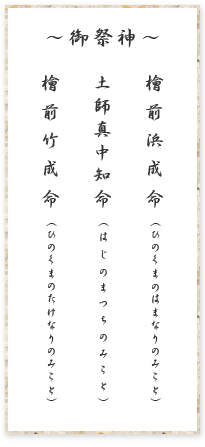 ～御祭神～
檜前浜成命（ひのくまのはまなりのみこと）
土師真中知命（はじのまつちのみこと）
檜前竹成命（ひのくまのたけなりのみこと）